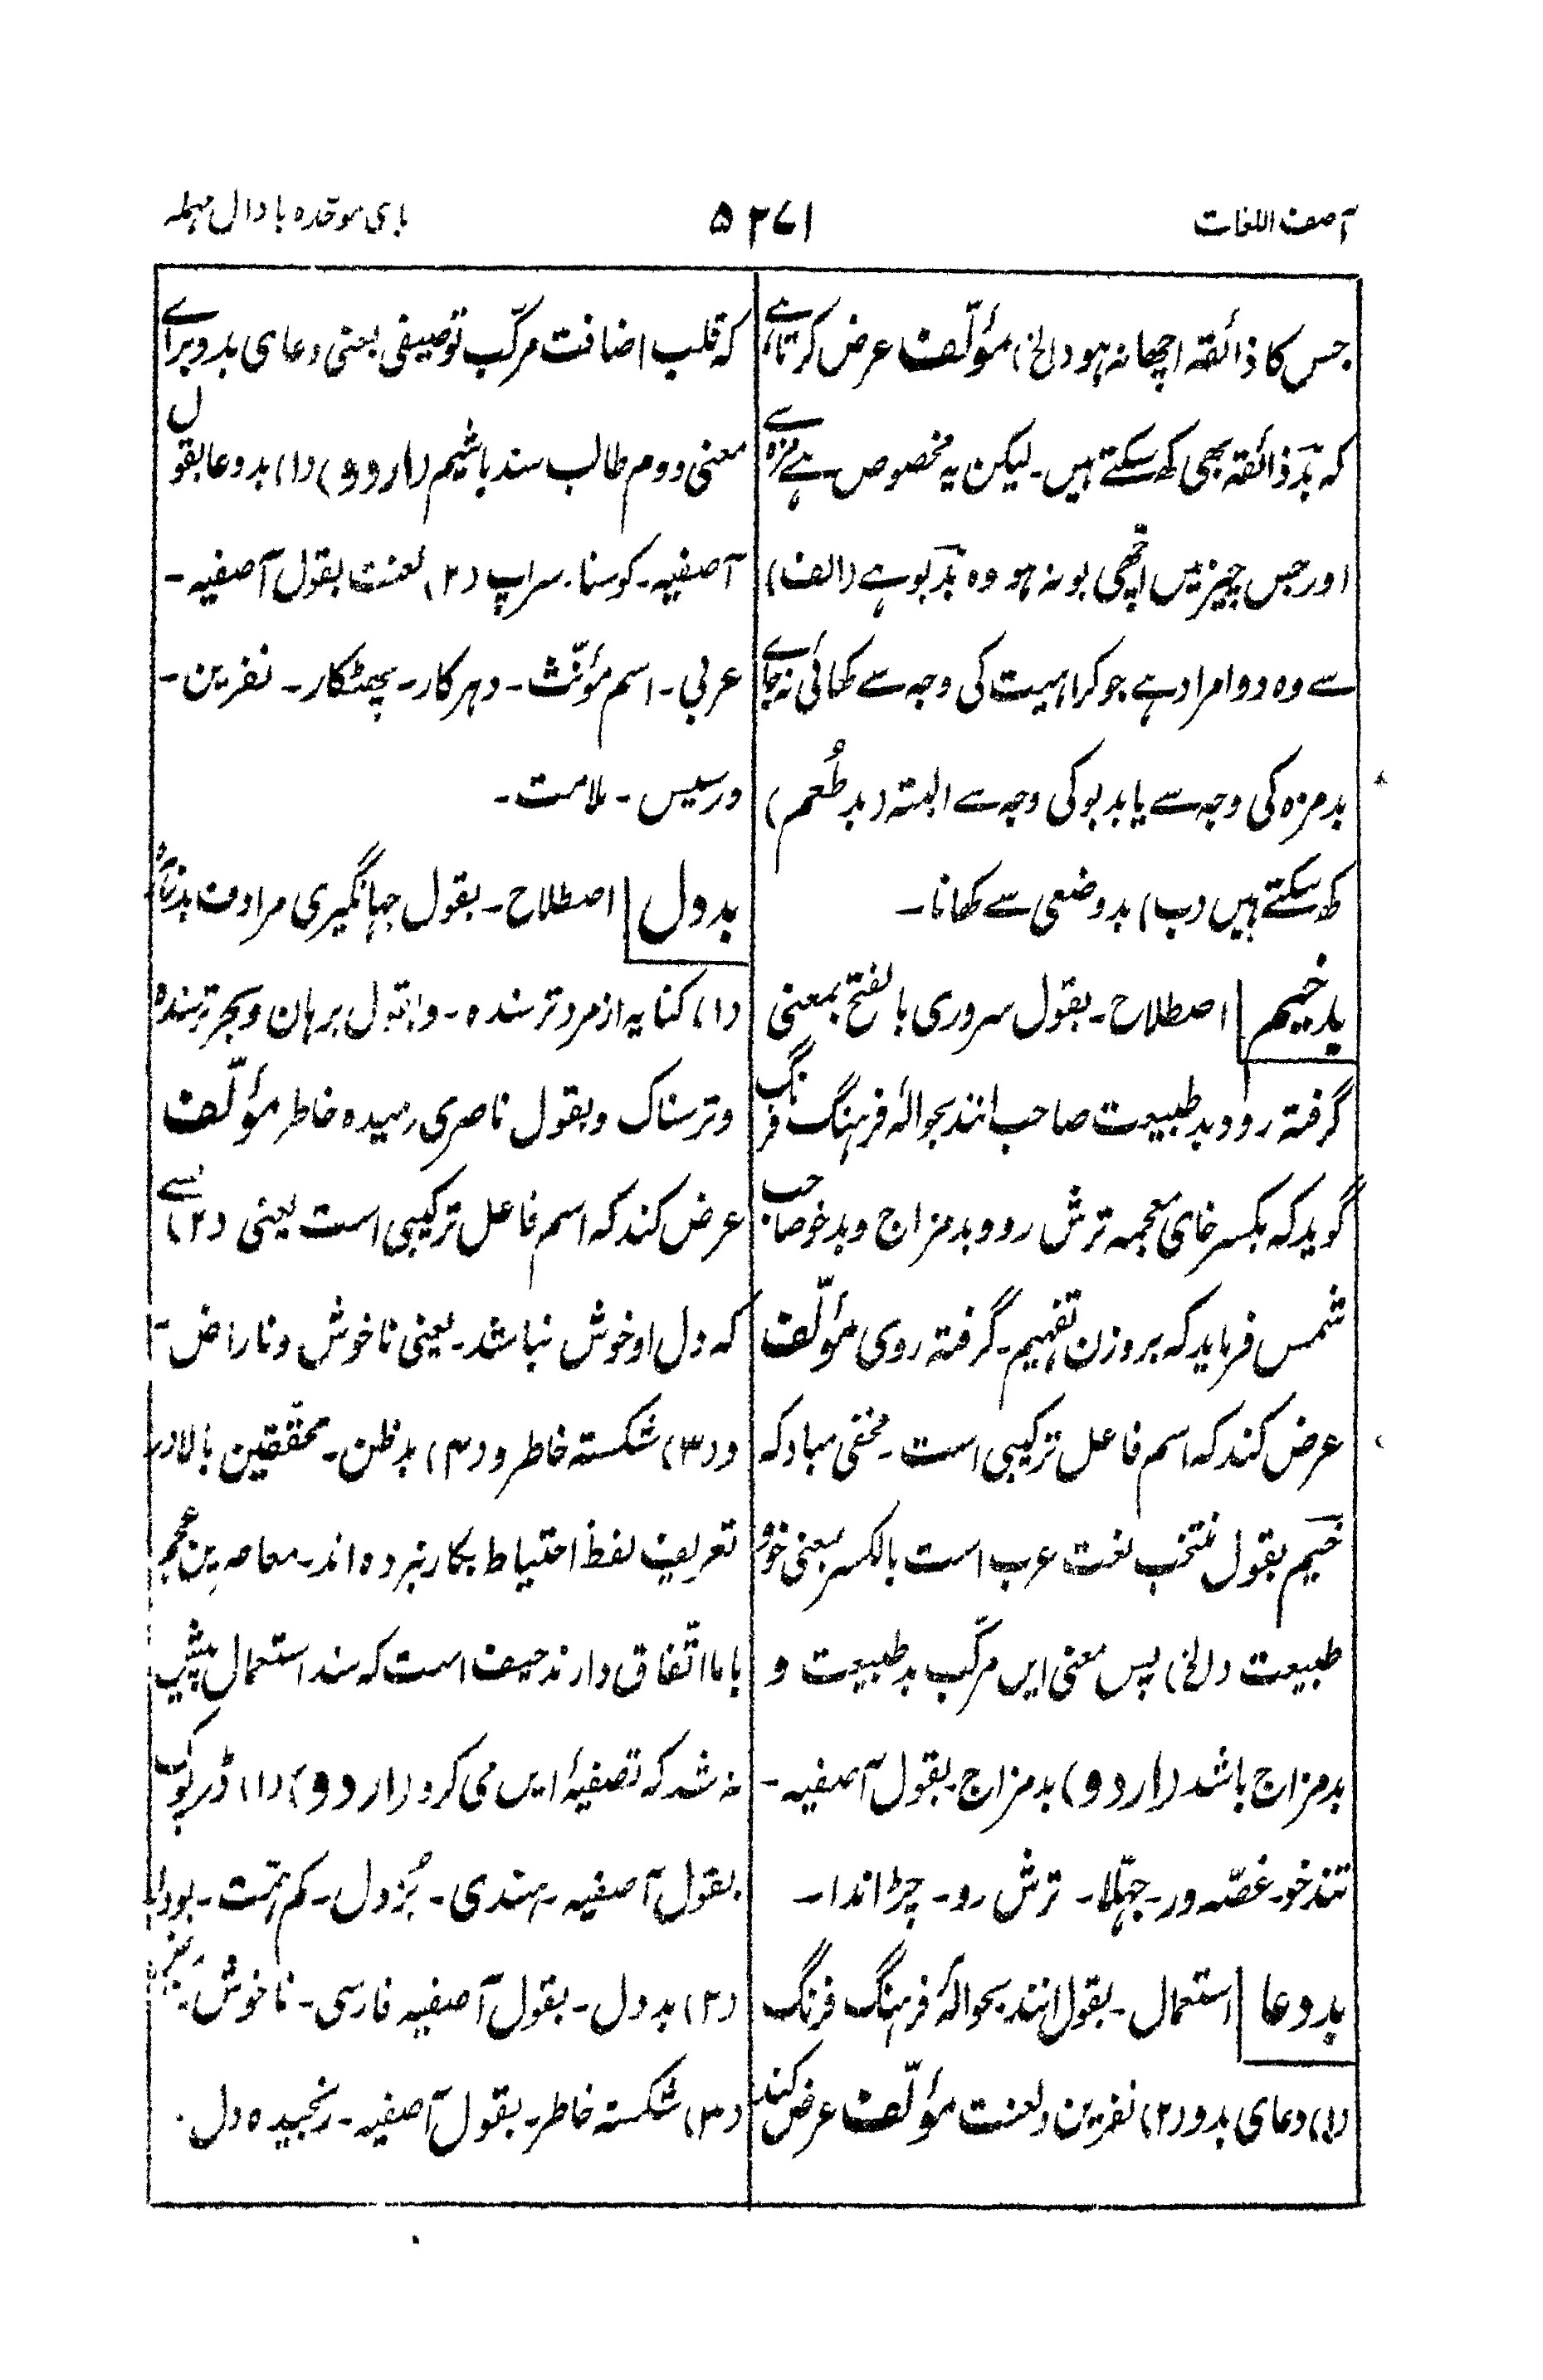 آصف اللغات
۵۲۷۱
بای موحّده با دال مہملہ
جس کا ذائقہ اچھا نہ ہو (الخ) مؤلّف عرض کرتا ہے
کہ بدذائقہ بھی کہہ سکتے ہیں۔ لیکن یہ مخصوص ہے مزہ سے
اور جس چیز میں اچھی بو نہ ہو وہ بدبو ہے (الف)
سے وہ دوا مراد ہے جو کراہیت کی وجہ سے کھائی نہ جائے
بدمزہ کی وجہ سے یا بدبو کی وجہ سے البتہ (بد طُعم)
کہہ سکتے ہیں (ب) بدوضعی سے کھانا۔
بدخیم | اصطلاح۔ بقول سروری بالفتح بمعنی
گرفتہ رو و بد طبیعت صاحب انند بحوالۂ فرہنگ فرنگ
گوید کہ بکسر خای معجمہ ترش رو و بدمزاج و بدخو صاحب
شمس فرماید کہ بروزن تفہیم۔ گرفتہ روی مؤلّف
عرض کند کہ اسم فاعل ترکیبی است۔ مخفی مباد کہ
خیم بقول منتخب لغت عرب است بالکسر بمعنی خو و
طبیعت (الخ) پس معنی ایں مرکّب بد طبیعت و
بدمزاج باشد (اردو) بدمزاج۔ بقول آصفیہ۔
تند خو۔ غصّہ ور۔ جھلّا۔ ترش رو۔ چڑاندا۔
بددعا | استعمال۔ بقول انند بحوالۂ فرہنگ فرنگ
(۱) دعای بد و (۲) نفرین و لعنت مؤلّف عرض کند
کہ قلب اضافت مرکّب توصیفی بعنی دعای بد و برائے
معنی دوم طالب سند باشیم (اردو) (۱) بددعا بقول
آصفیہ۔ کوسنا۔ سراپ (۲) لعنت بقول آصفیہ۔
عربی۔ اسم مؤنّث۔ دہرکار۔ پھٹکار۔ نفرین۔
ورسیس۔ ملامت۔
بددل | اصطلاح۔ بقول جہانگیری مرادف
(۱) کنایہ از مرد ترسندہ۔ و بقول برہان و بحر ترسندہ
و ترسناک و بقول ناصری رمیدہ خاطر مؤلّف
عرض کند کہ اسم فاعل ترکیبی است یعنی (۲) کسے
کہ دل او خوش نباشد۔ یعنی ناخوش و ناراض۔
و (۳) شکستہ خاطر و (۴) بدظن۔ محقّقین بالا در
تعریف لفظ احتیاط بکار نبردہ اند۔ معاصرین عجم
با ما اتّفاق دارند حیف است کہ سند استعمالِ پیش
نہ شد کہ تصفیۂ ایں می کرد (اردو) (۱) ڈرپوک
بقول آصفیہ۔ ہندی۔ بُزدل۔ کم ہمّت۔ بودا۔
(۲) بددل۔ بقول آصفیہ فارسی۔ ناخوش۔
(۳) شکستہ خاطر۔ بقول آصفیہ۔ رنجیدہ دل۔